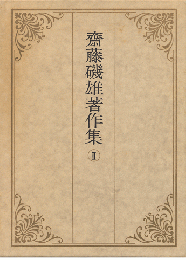 齋藤磯雄著作集Ⅱ